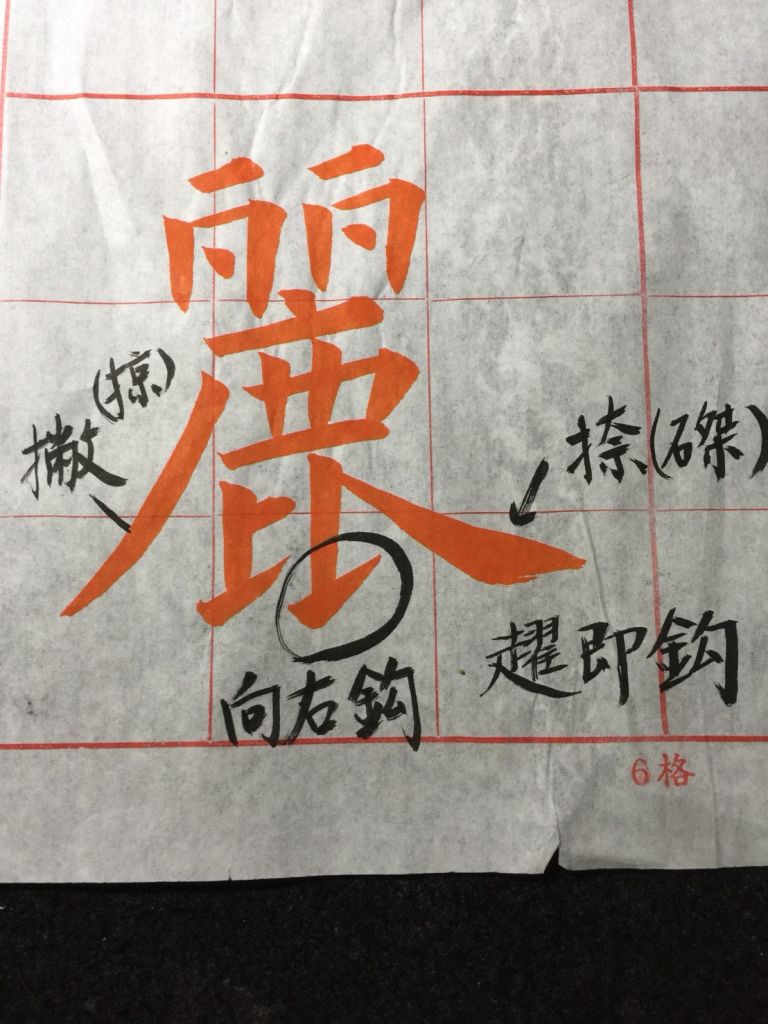 麗
撇(掠)
捺(磔)
向右鈎
趯即鈎
6格